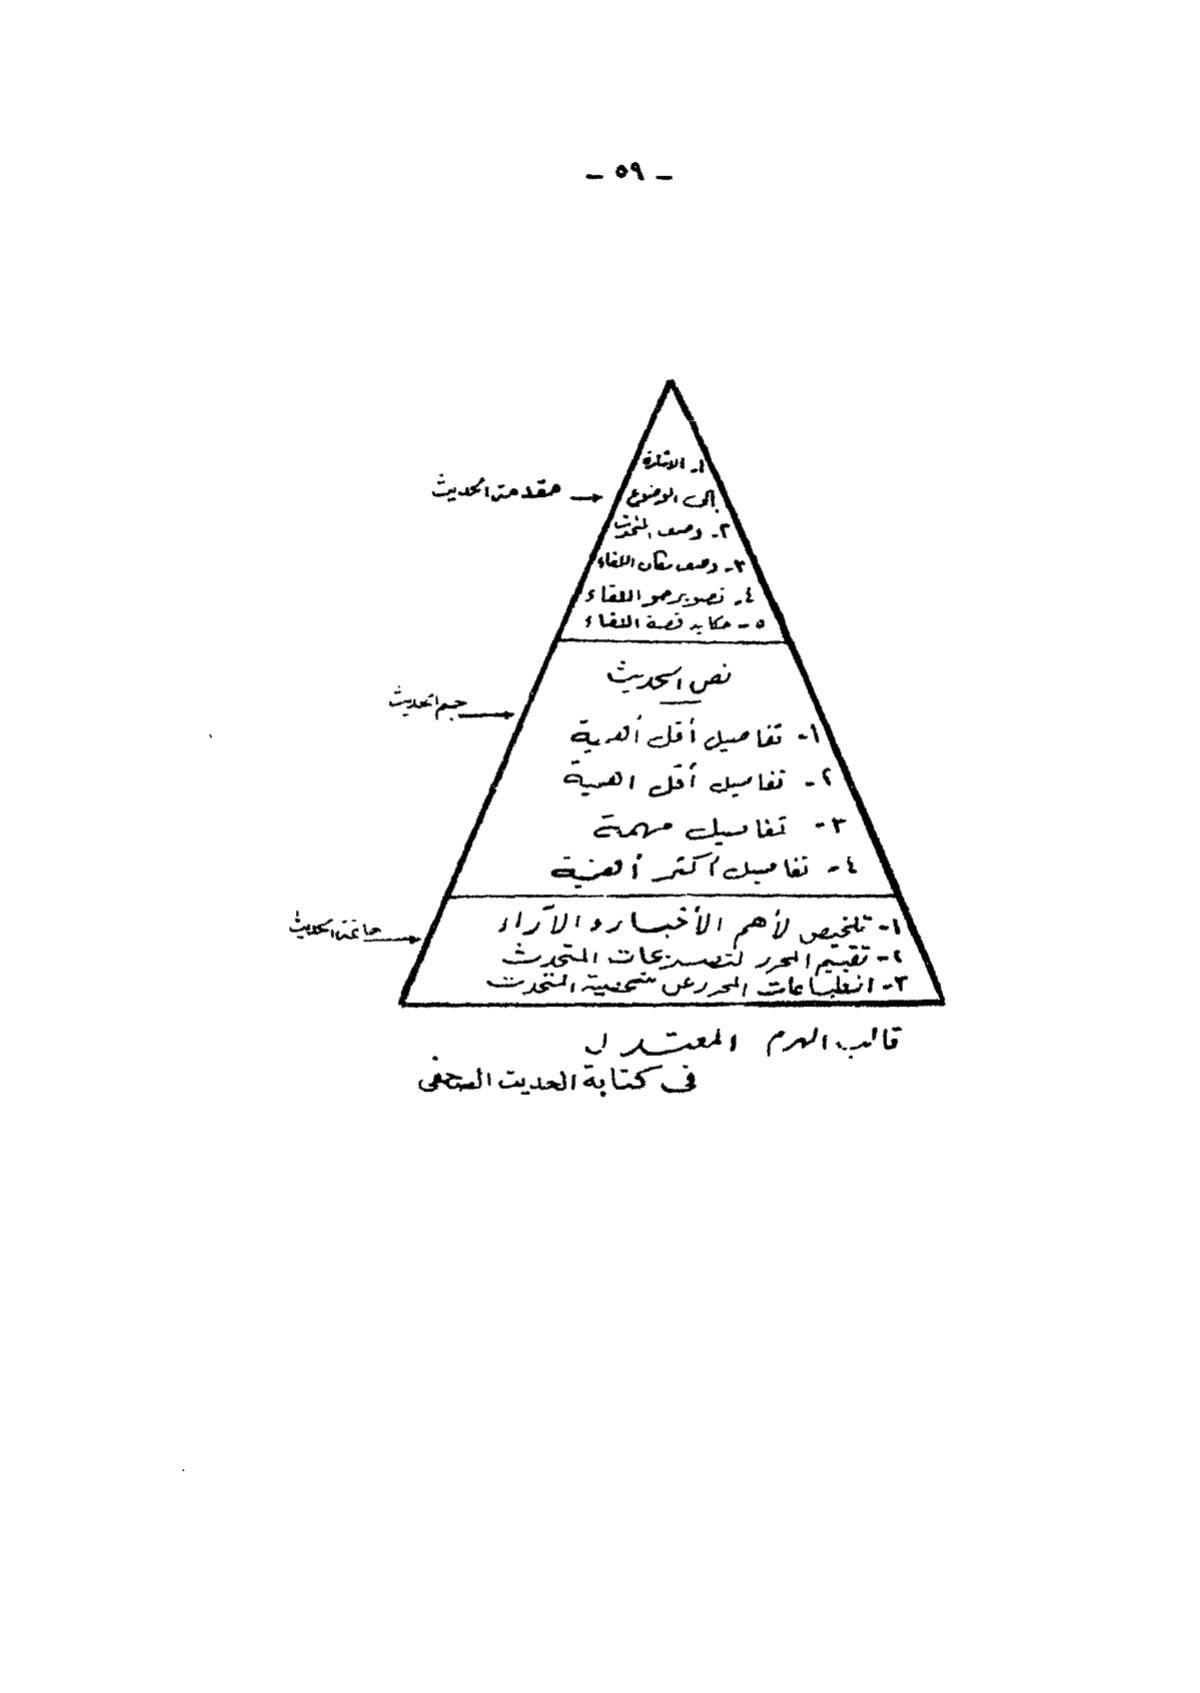 - ٥٩ -
١- الاشارة
مقدمة الحديث
إلى الموضوع
٢- وصف المتحدث
٣- وصف مكان اللقاء
٤- تصوير جو اللقاء
٥- حكاية قصة اللقاء
نص الحديث
جسم الحديث
١- تفاصيل أقل أهمية
٢- تفاصيل أقل اهمية
٣- تفاصيل مهمة
٤- تفاصيل أكثر أهمية
١- تلخيص لأهم الأخبار والآراء
خاتمة الحديث
٢- تقييم المحرر لتصريحات المتحدث
٣- انطباعات المحرر عن شخصية المتحدث
قالب الهرم المعتدل
فى كتابة الحديث الصحفى